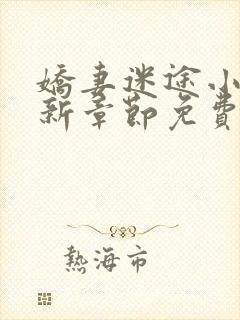 嬌妻迷途小
新章節免費
熱海市